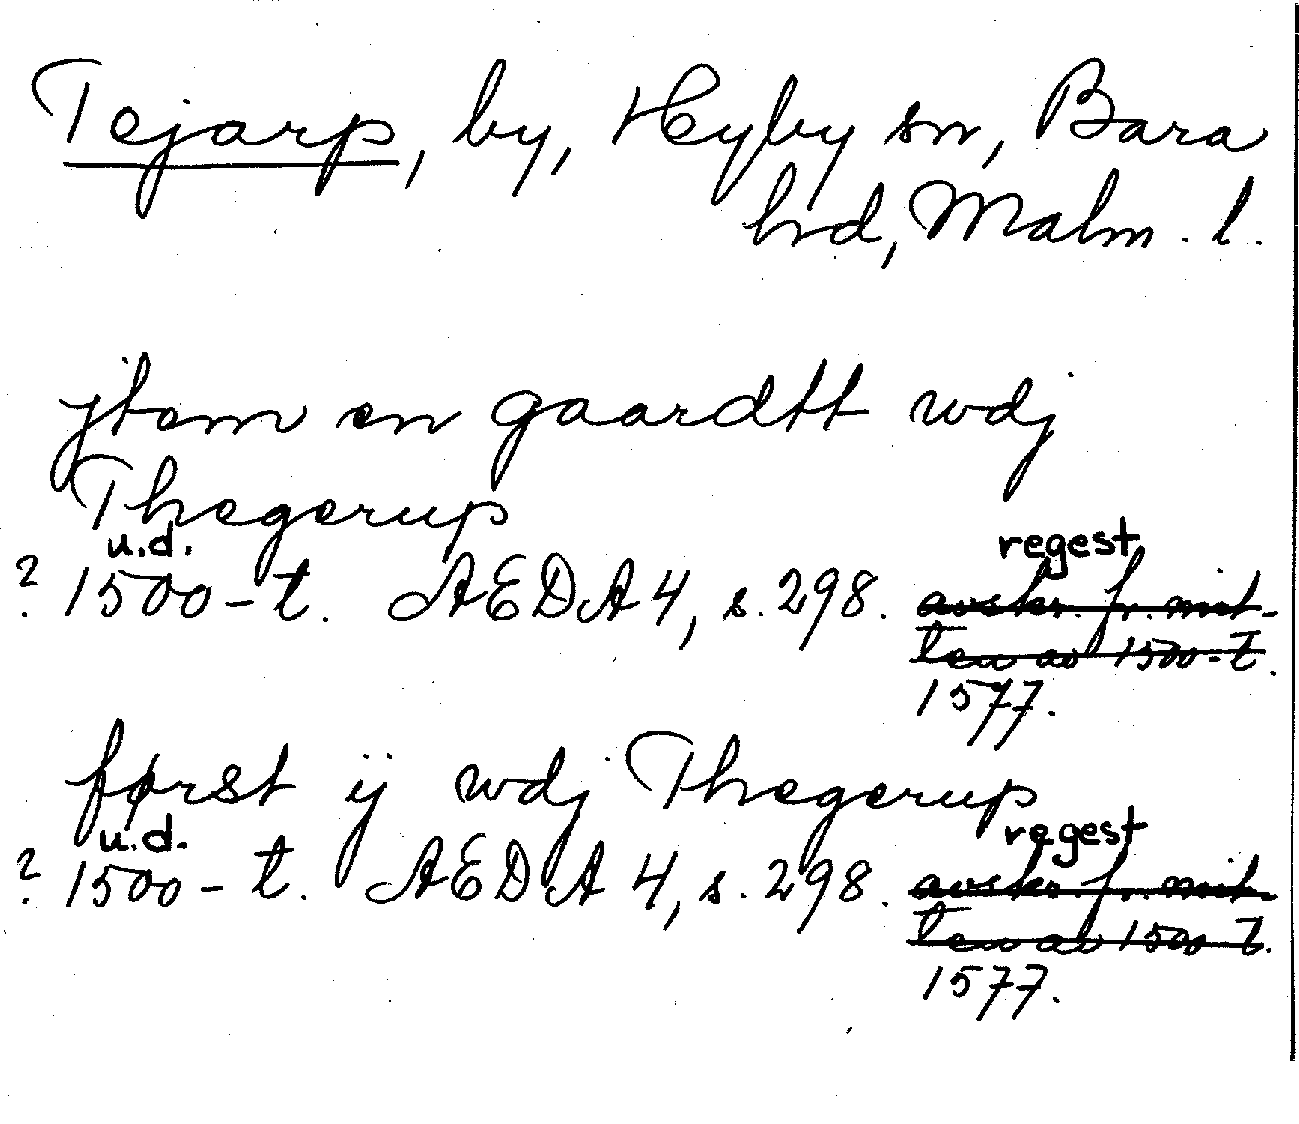 Tejarp, by, Hyby sn, Bara
hd, Malm. l.
jtem en gaardtt wdj
Thegerup
u.d. regest
? 1500-t. AEDA 4, s. 298. avskr. fr. mit-
ten av 1500-t.
1577.
først ij wdj Thegerup
u.d. regest
? 1500-t. AEDA 4, s. 298. avskr. fr. mit-
ten av 1500-t.
1577.